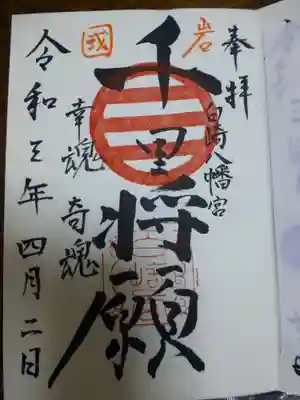 奉拝
岩
白崎八幡宮
千里将願
國
幸魂 奇魂
令和三年四月二日